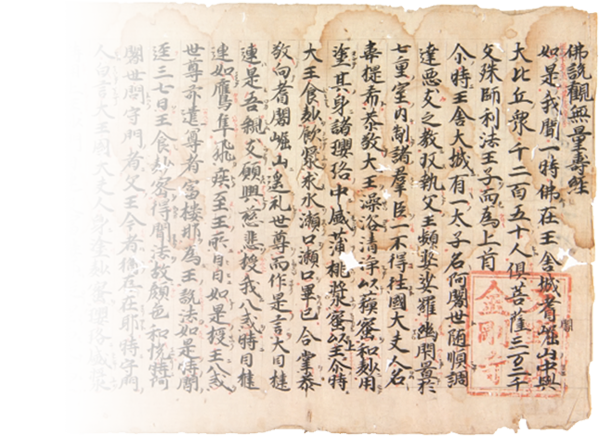 佛説觀無量壽経
如是我聞一時佛在王舍城耆闍崛山中與
大比丘衆千二百五十人俱菩薩三万二千
文殊師利法王子而為上首
尒時王舍大城有一太子名阿闍世随順調
達惡友之教収執父王頻婆娑羅幽閇置於
七重室内制諸羣臣一不得往國大夫人名
韋提希恭敬大王澡浴清淨以蘓蜜和麨用
塗其身諸瓔珞中盛蒲桃漿蜜以上王尒時
大王食麨飲漿求水漱口漱口畢已合掌恭
敬向耆闍崛山遥礼世尊而作是言大目揵
連是吾親友願興慈悲授我八戒時目揵
連如鷹隼飛疾至王所日日如是授王八戒
世尊亦遣尊者富樓那為王説法如是時間
逕三七日王食麨蜜得聞法故顔色和恱時阿
闍世問守門者父王今者猶存在耶時守門
人白言大王國大夫人身塗麨蜜瓔珞
金剛寺